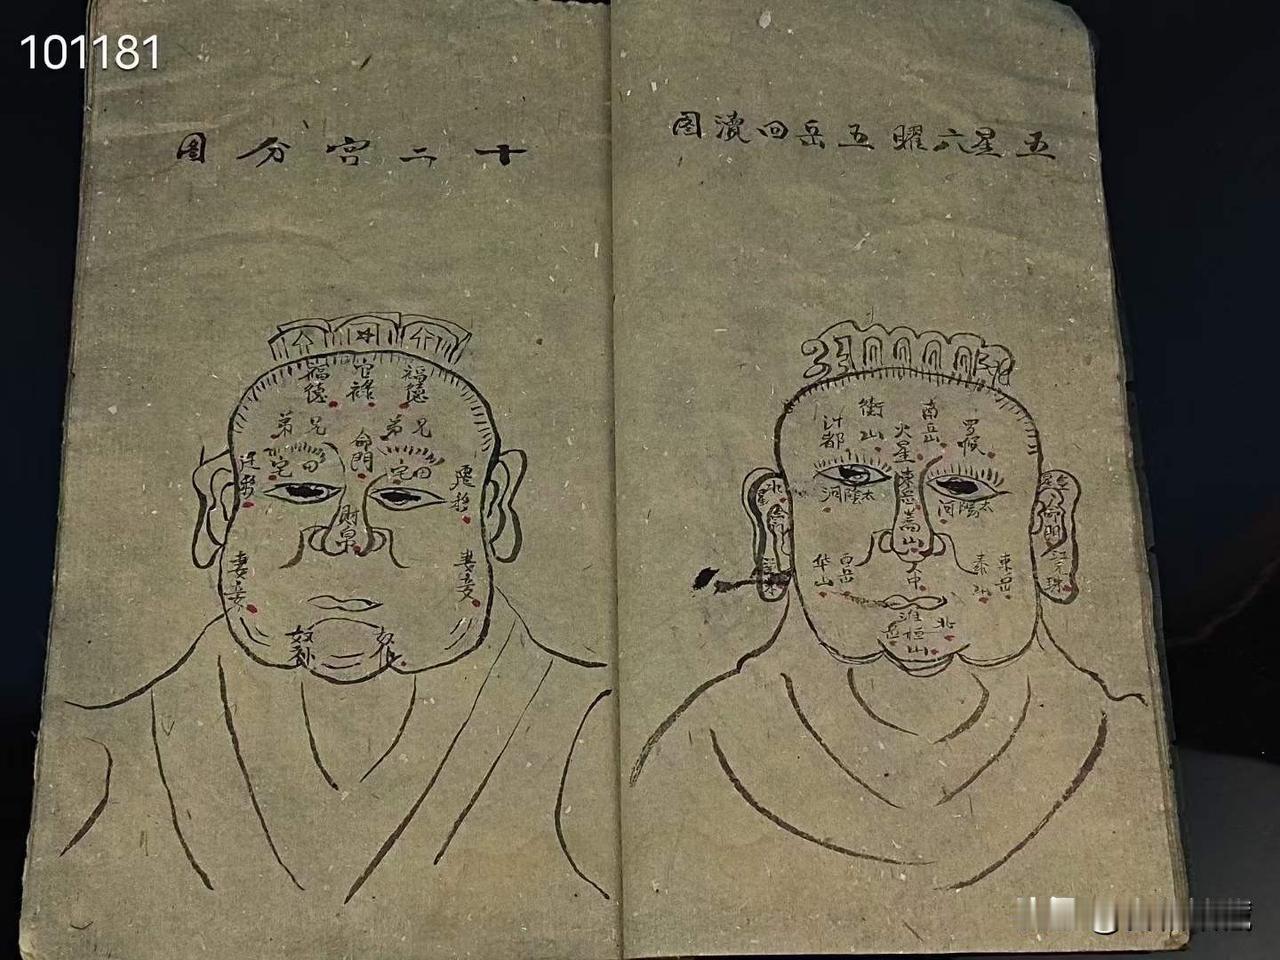 101181
五星六曜五岳四瀆图
計都
衡山
南岳山
火星
罗㬋
太陰
河
太陰
河
東岳
嵩山
水星
命門
命門
江
珠
華山
西岳
人中
東岳
泰山
淮
北
岳
恒山
十二宫分图
福德
官祿
福德
兄弟
兄弟
命門
田宅
田宅
迁移
遷移
財帛
妻妾
妻妾
奴
奴